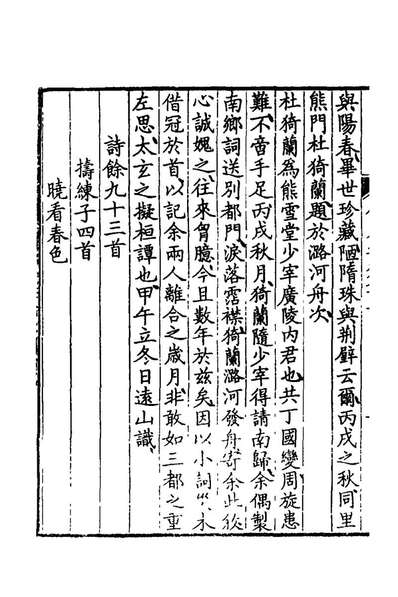 與陽春畢世珍藏陋隋珠與荆璧云爾丙戌之秋同里
熊門杜猗蘭題於潞河舟次
杜猗蘭為熊雪堂少宰廣陵内君也共丁國變周旋患
難不啻手足丙戌秋月猗蘭隨少宰得請南歸余偶製
南鄉詞送别都門淚落霑襟猗蘭潞河發舟寄余此後
心誠媿之往來胷臆今且數年於兹矣因以小詞 木
借冠於首以記余兩人離合之歲月非敢如三都之重
左思太玄之擬桓譚也甲午立冬日遠山識
詩餘九十三首
擣練子四首
曉看春色